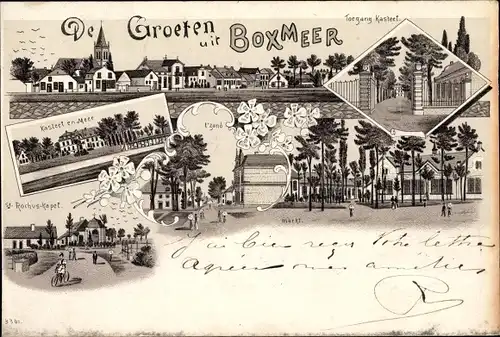 De Groeten uit BOXMEER
Toegang Kasteel.
Kasteel en Meer
't Zand
St Rochus-Kapel.
Markt.
J'ai bien reçu Votre lettre
agréez mes amitiés